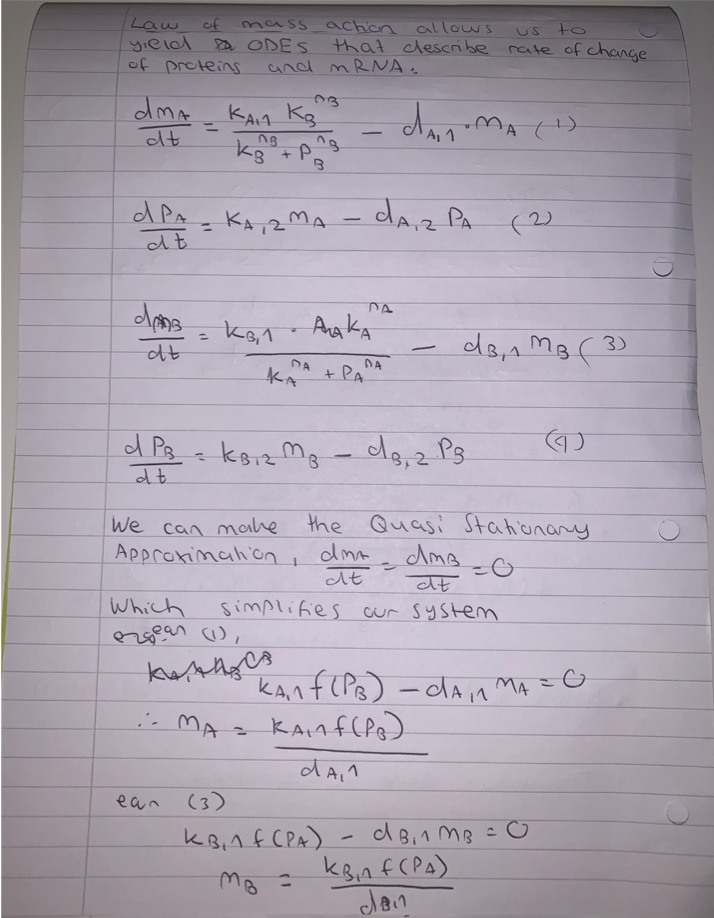 Law of mass action allows us to
yield ODEs that describe rate of change
of proteins and mRNA.
dm_A/dt = k_{A,1} k_B^{n_B} / (k_B^{n_B} + P_B^{n_B}) − d_{A,1} · m_A (1)
dP_A/dt = k_{A,2} m_A − d_{A,2} P_A (2)
dm_B/dt = k_{B,1} · k_A^{n_A} / (k_A^{n_A} + P_A^{n_A}) − d_{B,1} m_B (3)
dP_B/dt = k_{B,2} m_B − d_{B,2} P_B (4)
We can make the Quasi Stationary
Approximation, dm_A/dt = dm_B/dt = 0
Which simplifies our system
eqn (1),
k_{A,1} f(P_B) − d_{A,1} m_A = 0
∴ m_A = k_{A,1} f(P_B) / d_{A,1}
eqn (3)
k_{B,1} f(P_A) − d_{B,1} m_B = 0
m_B = k_{B,1} f(P_A) / d_{B,1}